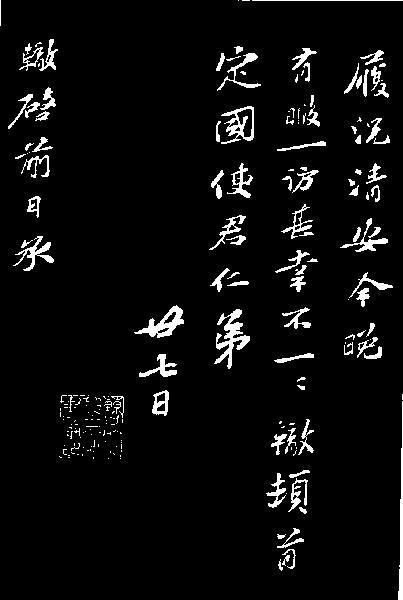 履況清安今晚
有暇一訪甚幸不一〻轍頓首
定國使君仁弟
廿七日
轍啓前日承